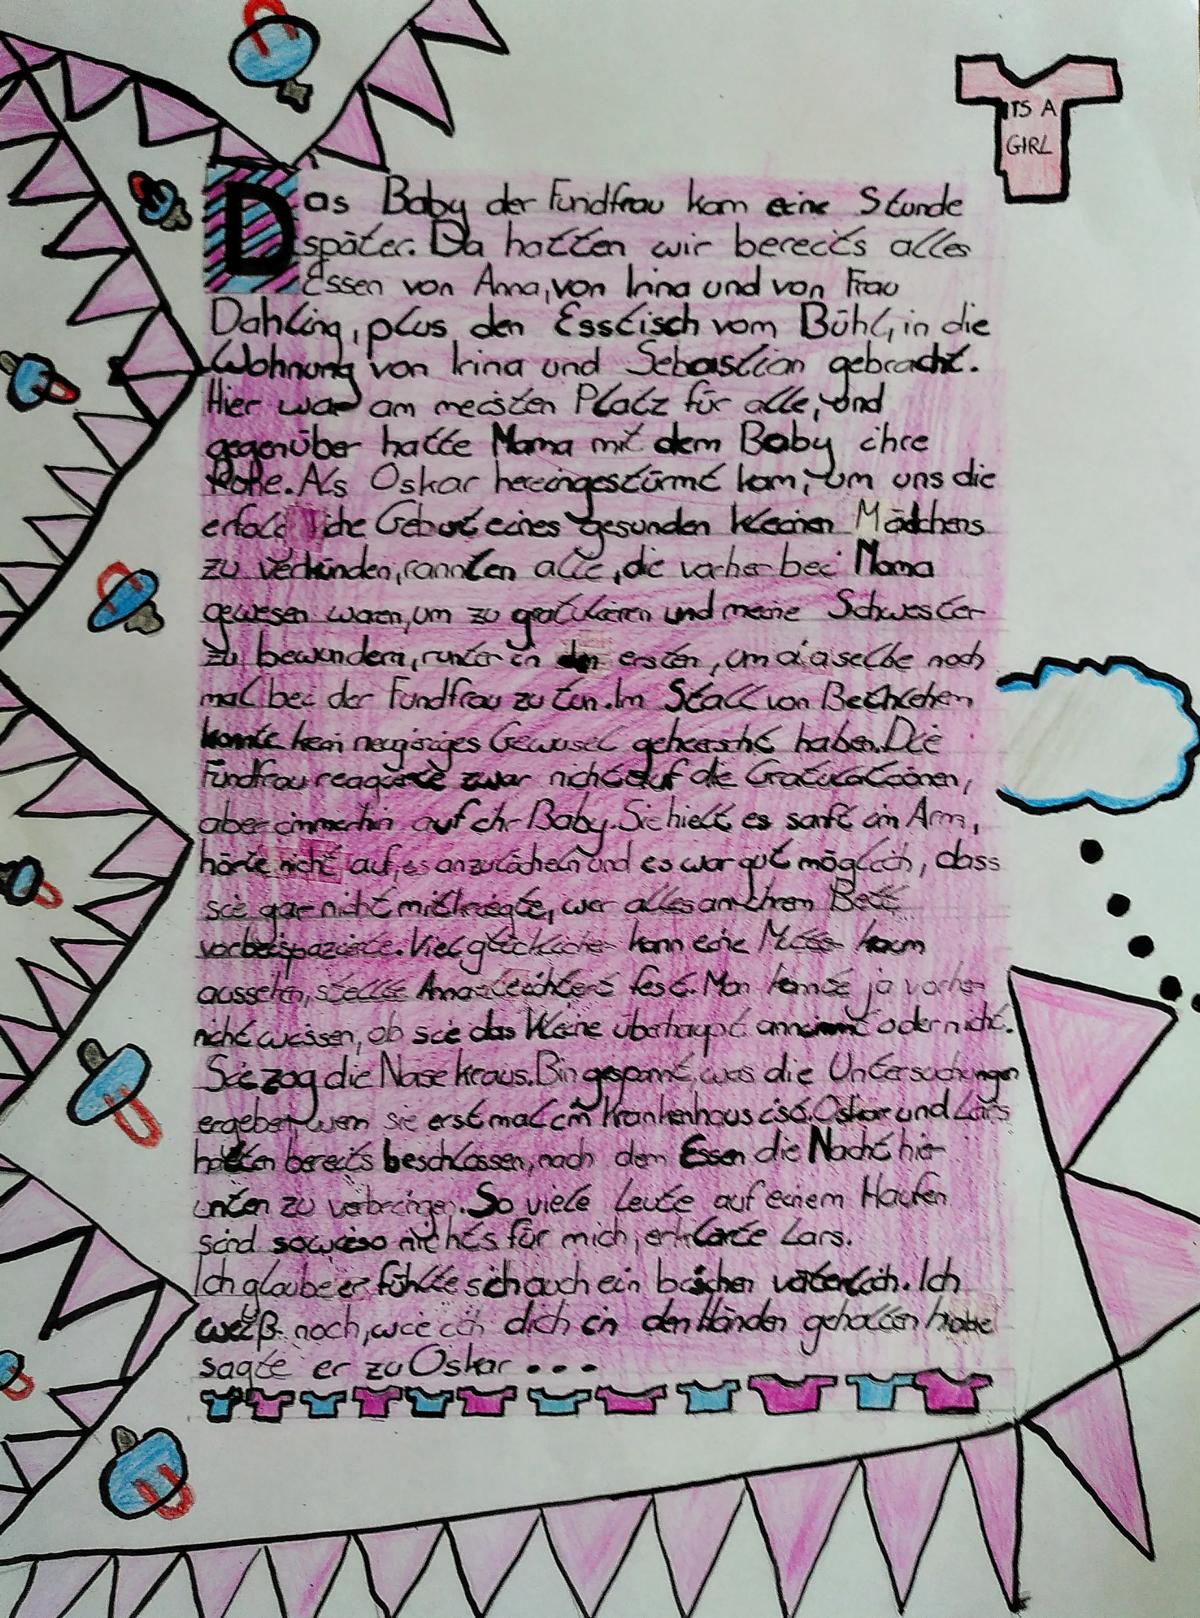 ITS A
GIRL
Das Baby der Fundfrau kam eine Stunde
später. Da hatten wir bereits alles
Essen von Anna, von Irina und von Frau
Dahling, plus den Esstisch vom Bühl, in die
Wohnung von Irina und Sebastian gebracht.
Hier war am meisten Platz für alle, und
gegenüber hatte Mama mit dem Baby ihre
Ruhe. Als Oskar hereingestürmt kam, um uns die
Geburt eines gesunden kleinen Mädchens
zu verkünden, rannten alle, die vorher bei Mama
gewesen waren, um zu gratulieren und meine Schwester
zu bewundern, runter in den ersten, um dasselbe noch
mal bei der Fundfrau zu tun. Im Stall von Bethlehem
konnte kein neugieriges Gewusel geherrscht haben. Die
Fundfrau reagierte zwar nicht auf die Gratulationen,
aber immerhin auf ihr Baby. Sie hielt es sanft im Arm,
hörte nicht auf, es anzulächeln und es war gut möglich, dass
sie gar nicht mitkriegte, wer alles an ihrem Bett
vorbeispazierte. Viel glücklicher kann eine Mutter kaum
aussehen, stellte Anna erleichtert fest. Man konnte ja vorher
nicht wissen, ob sie das Kleine überhaupt annimmt oder nicht.
Sie zog die Nase kraus. Bin gespannt, was die Untersuchungen
ergeben, wenn sie erst mal im Krankenhaus ist. Oskar und Lars
hatten bereits beschlossen, nach dem Essen die Nacht hier
unten zu verbringen. So viele Leute auf einem Haufen
sind sowieso nichts für mich, erklärte Lars.
Ich glaube er fühlte sich auch ein bisschen väterlich. Ich
weiß noch, wie ich dich in den Händen gehalten habe
sagte er zu Oskar ...